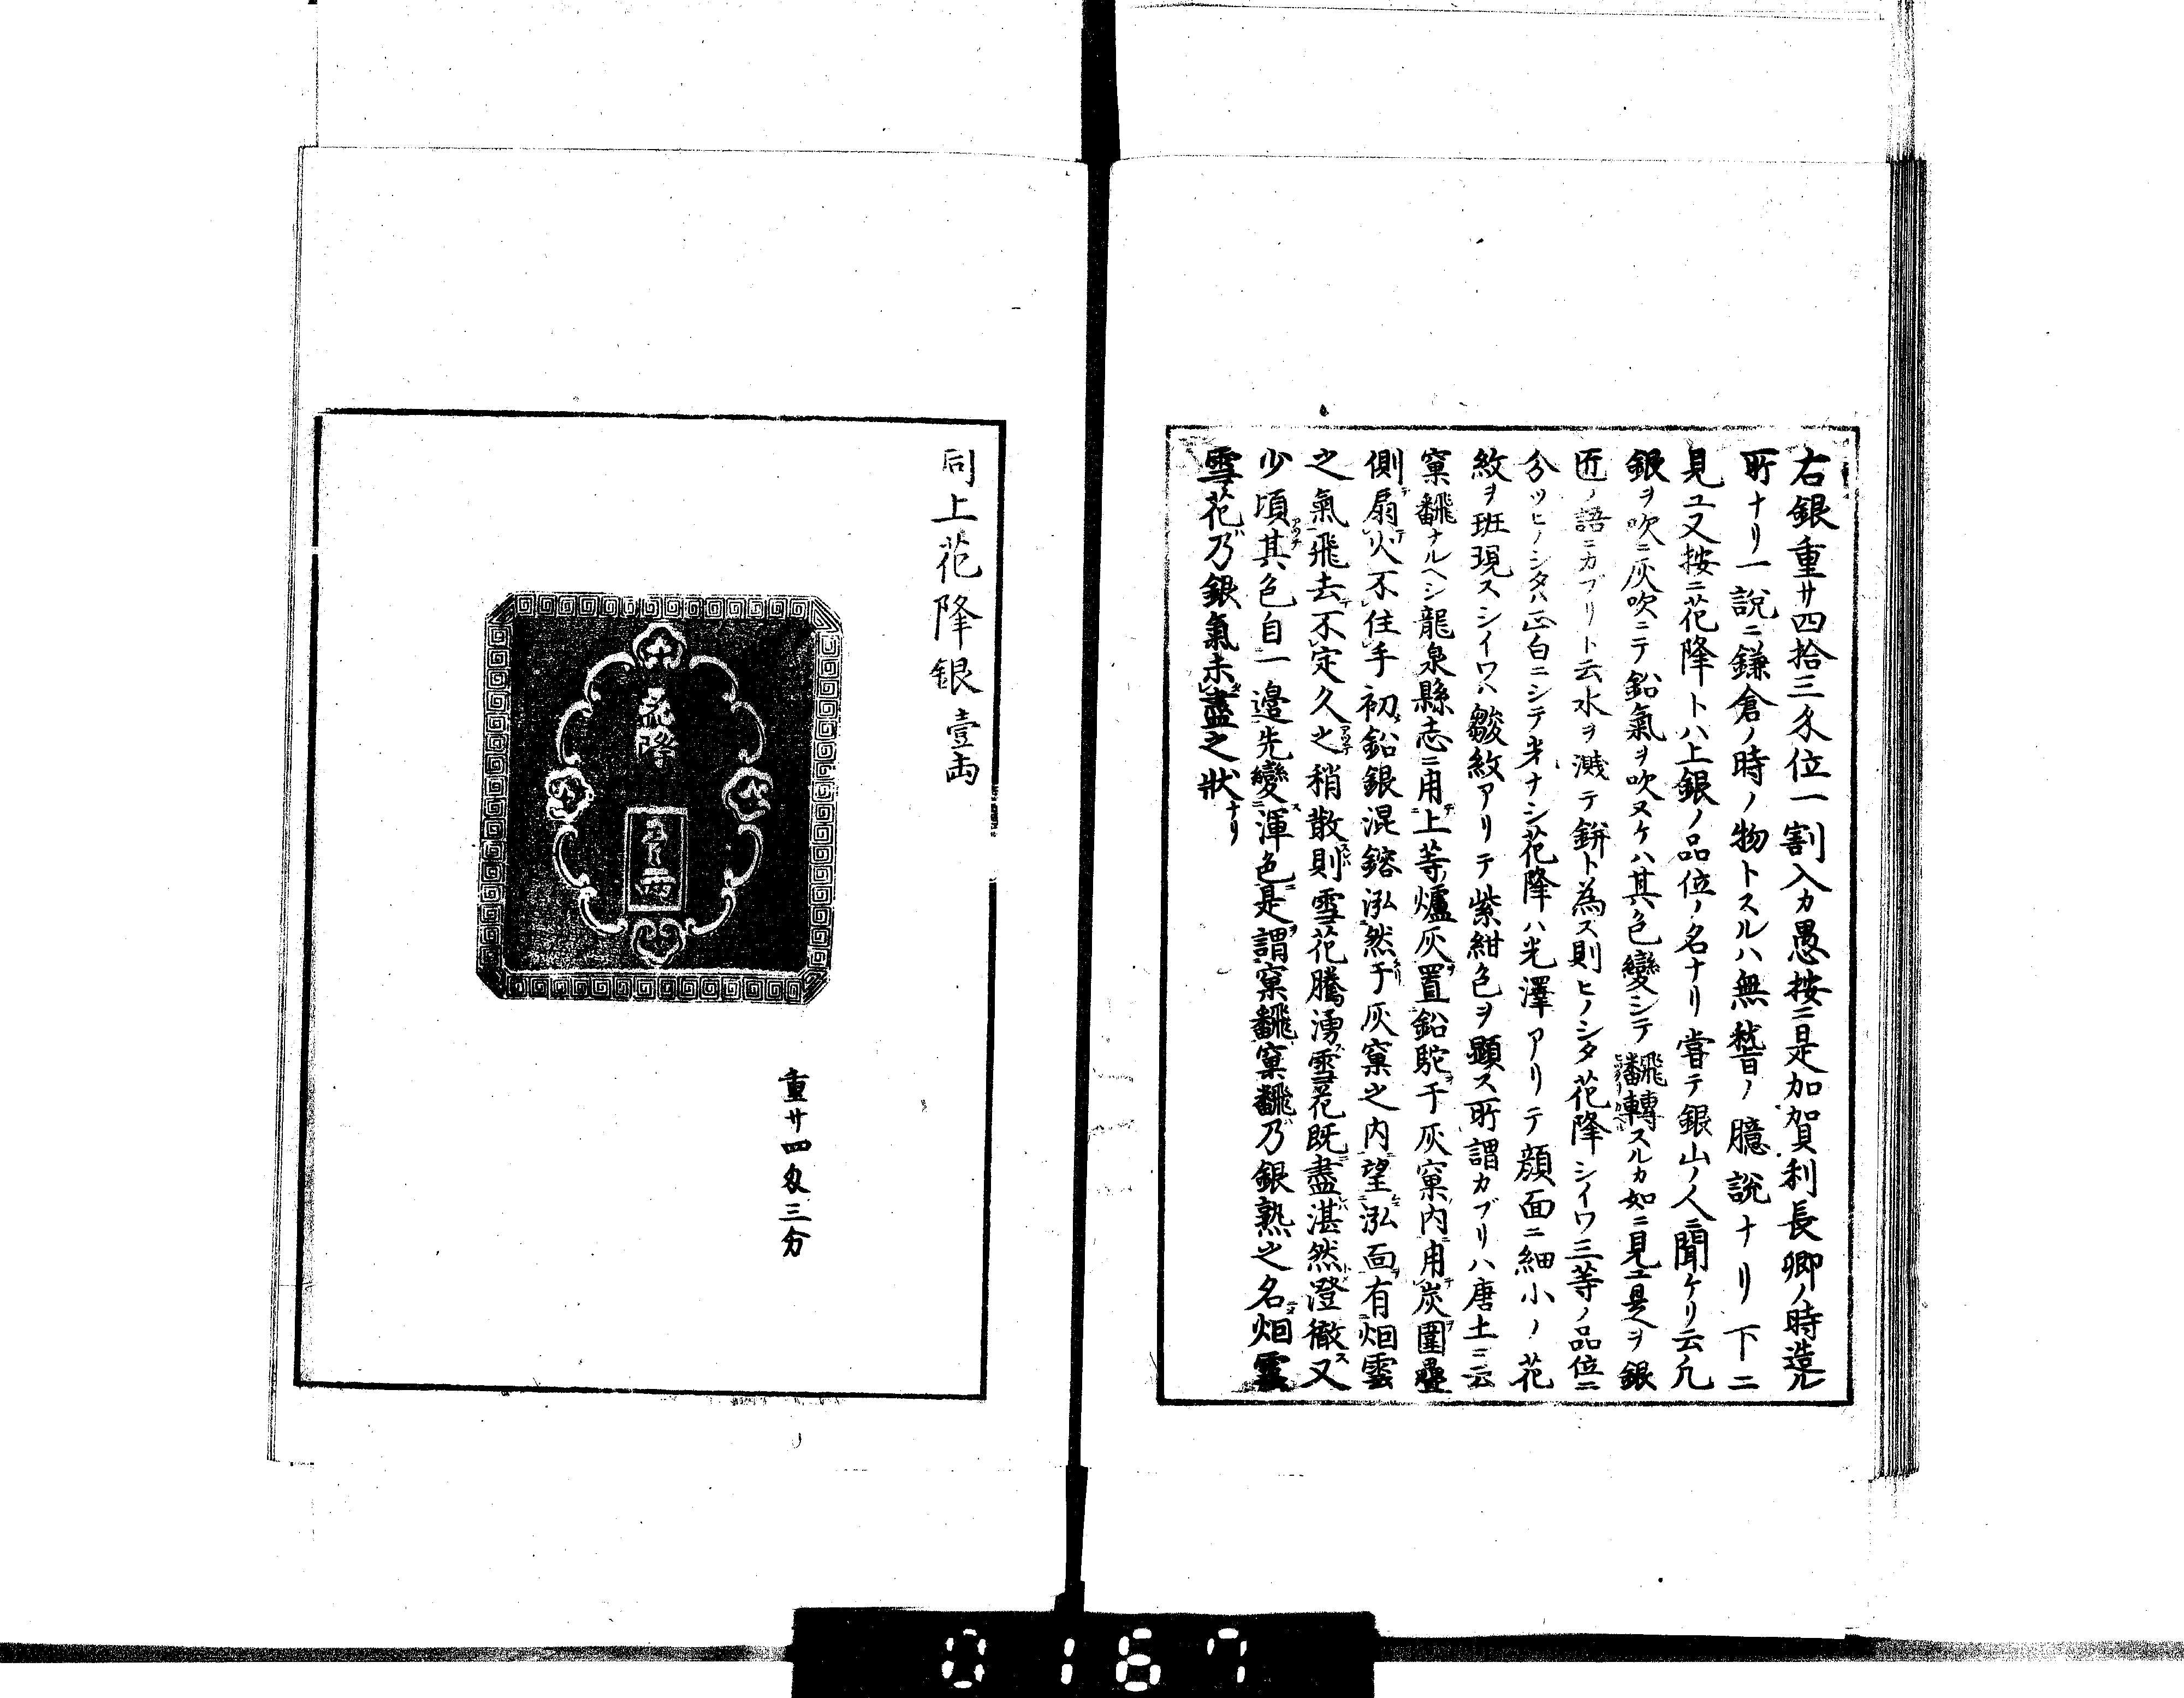 右銀重廿四拾三匁位一割入カ愚按ニ是加賀利長卿ノ時造ル
所ナリ一說ニ鎌倉ノ時ノ物トスルハ無稽ノ臆說ナリ下ニ
見ユ又按ニ花降トハ上銀ノ品位ノ名ナリ嘗テ銀山ノ人ニ聞ケリ云凡
銀ヲ吹ニ灰吹ニテ鉛氣ヲ吹ヌケハ其色變シテ飜轉スルカ如ニ見ユ是ヲ銀
匠ノ語ニカブリト云水ヲ濺テ餅ト為ス則ヒノシタ花降シイワ三等ノ品位ニ
分ツヒノシタハ正白ニシテ光ナシ花降ハ光澤アリテ顔面ニ細小ノ花
紋ヲ班現スシイワハ皺紋アリテ紫紺色ヲ顯ス所謂カブリハ唐土ニ云
窠飜ナルヘシ龍泉縣志ニ用上等爐灰置鉛駝于灰窠內用炭圍疊
側扇火不住手初鉛銀混鎔泓然于灰窠之内望泓面有烟雲
之氣飛去不定久之稍散則雪花騰湧雪花既盡湛然澄徹又
少頃其色自一邉先變渾色是謂窠飜窠飜乃銀熟之名烟雲
雪花乃銀氣未盡之狀ナリ
同上花降銀壹兩
花降
壹兩
重廿四匁三分
0167